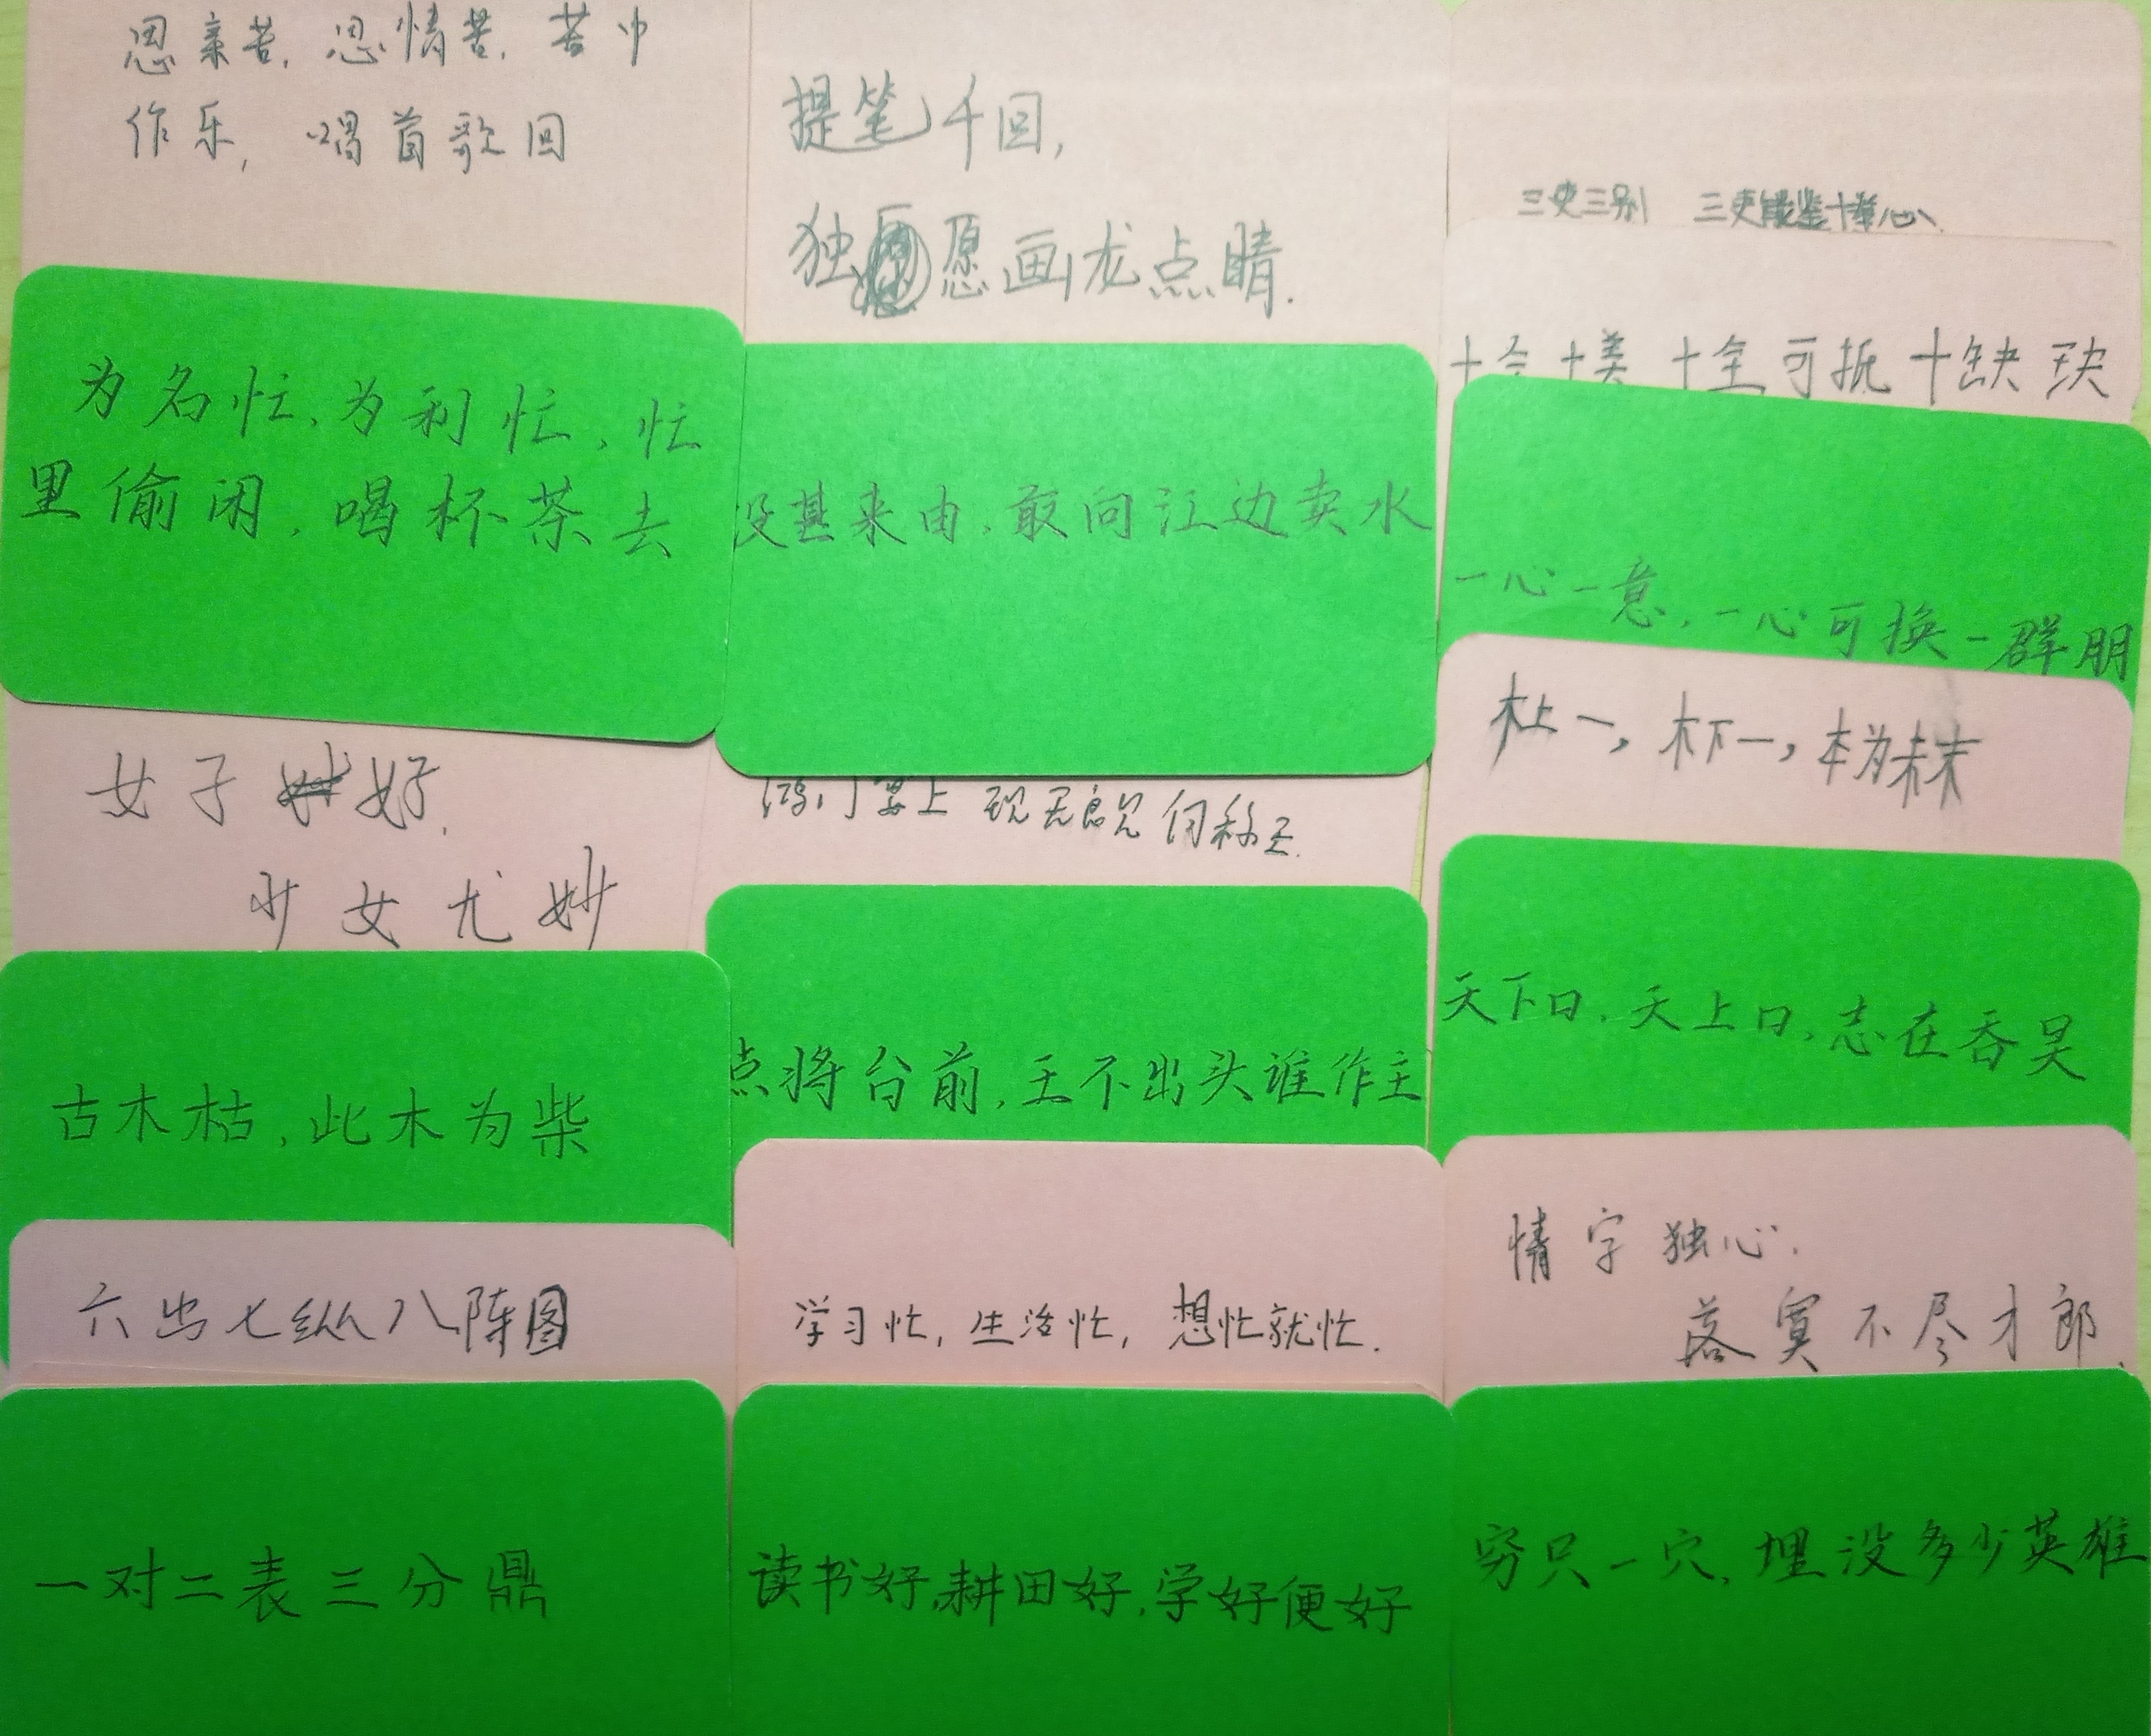 思亲苦,思情苦,苦中
作乐,唱首歌回
为名忙,为利忙,忙
里偷闲,喝杯茶去
女子好,
少女尤妙
古木枯,此木为柴
六出七纵八阵图
一对二表三分鼎
提笔千回,
独愿画龙点睛.
没甚来由,敢向江边卖水
鸿门宴上 现无良兄 何称王.
点将台前,王不出头谁作主
学习忙,生活忙,想忙就忙.
读书好,耕田好,学好便好
三吏三别
十全十美 十全可抵十缺玦
一心一意,一心可换一群朋
木上一,木下一,本为未末
天下口,天上口,志在吞吴
情字独心.
落寞不尽才郎.
穷只一穴,埋没多少英雄